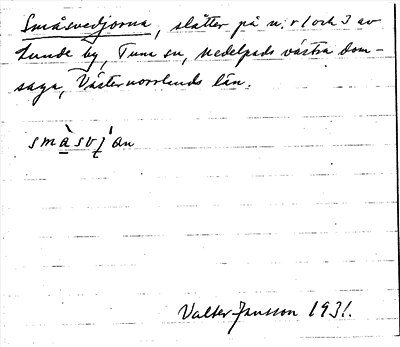 Småsvedjorna, slåtter på n:r 1 och 3 av
Lunde by, Tuna sn, Medelpads västra dom-
saga, Västernorrlands län.
småsvjan
Valter Jansson 1931.